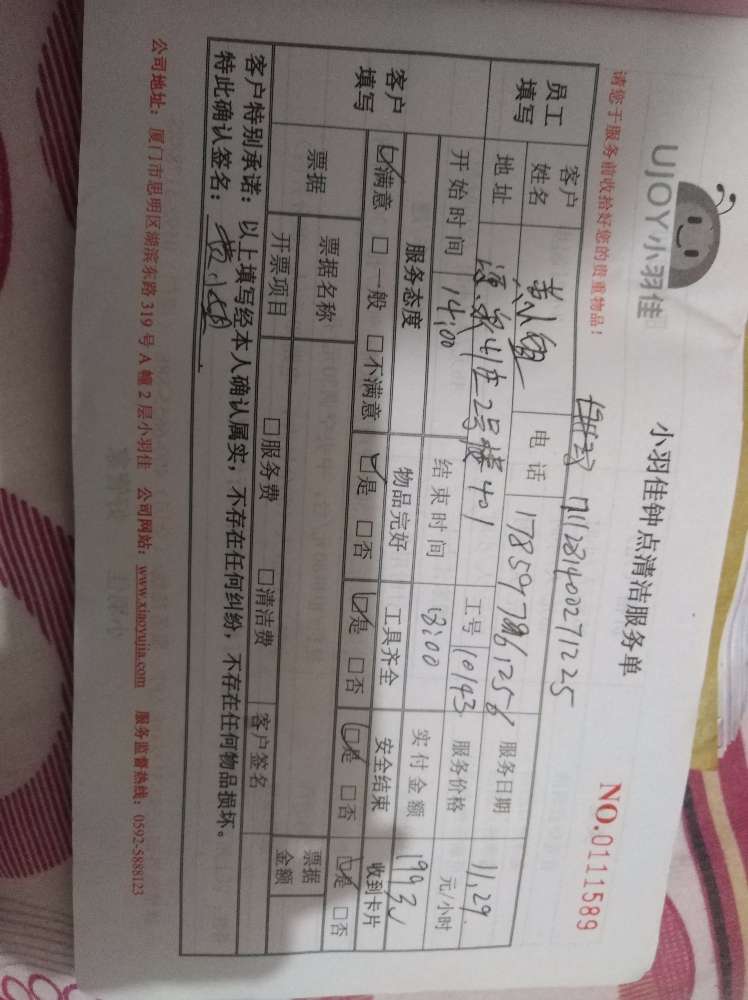 UJOY小羽佳
小羽佳钟点清洁服务单
NO.0111589
请您于服务前收拾好您的贵重物品！
711281400271225
员工填写
客户姓名
电话
服务日期 11.29
地址 2号楼401
工号 10143
服务价格 元/小时
客户填写
开始时间 14:00
结束时间 18:00
实付金额
服务态度 物品完好 工具齐全 安全结束 收到卡片
☑满意 □一般 □不满意 ☑是 □否 ☑是 □否 ☑是 □否 ☑是 □否
票据
票据名称
票据金额
开票项目 □服务费 □清洁费 客户签名
客户特别承诺：以上填写经本人确认属实，不存在任何纠纷，不存在任何物品损坏。
特此确认签名：
公司地址：厦门市思明区湖滨东路 319 号 A 幢 2 层小羽佳 公司网站：www.xiaoyujia.com 服务监督热线：0592-5888123